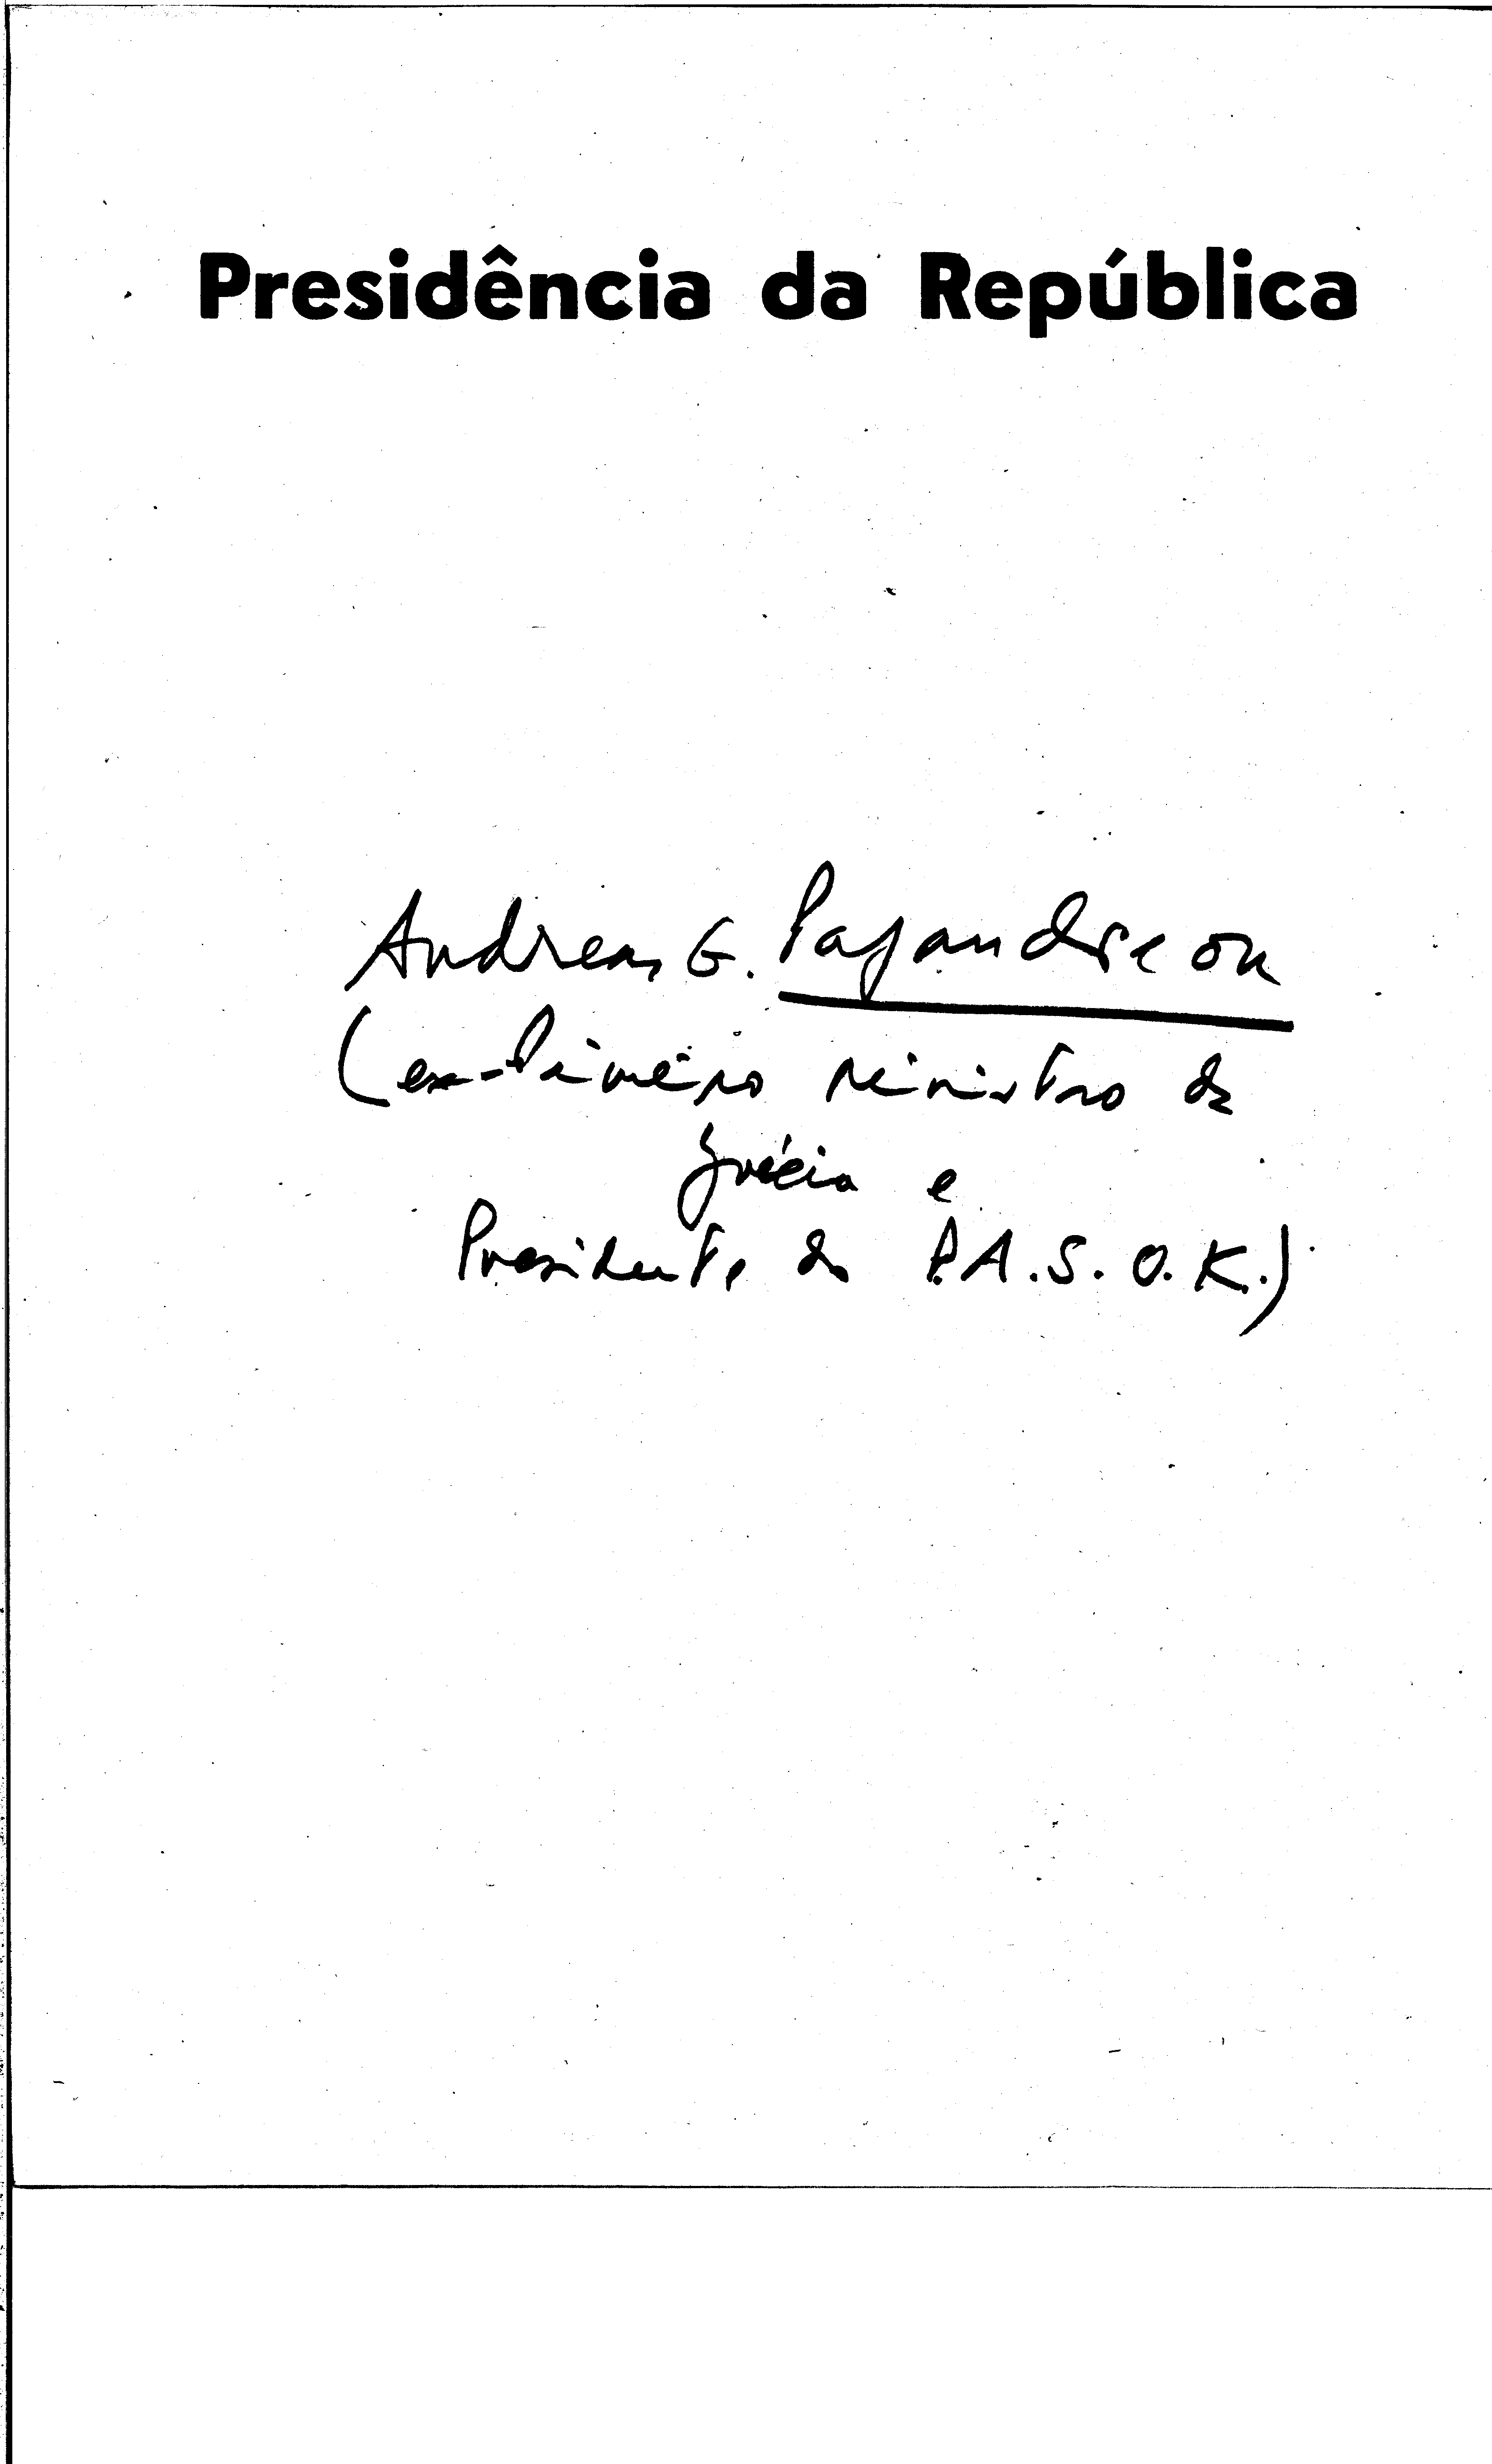 Presidência da República
Andreas G. Papandreou
(ex-Primeiro Ministro da
Grécia e
Presidente do P.A.S.O.K.)